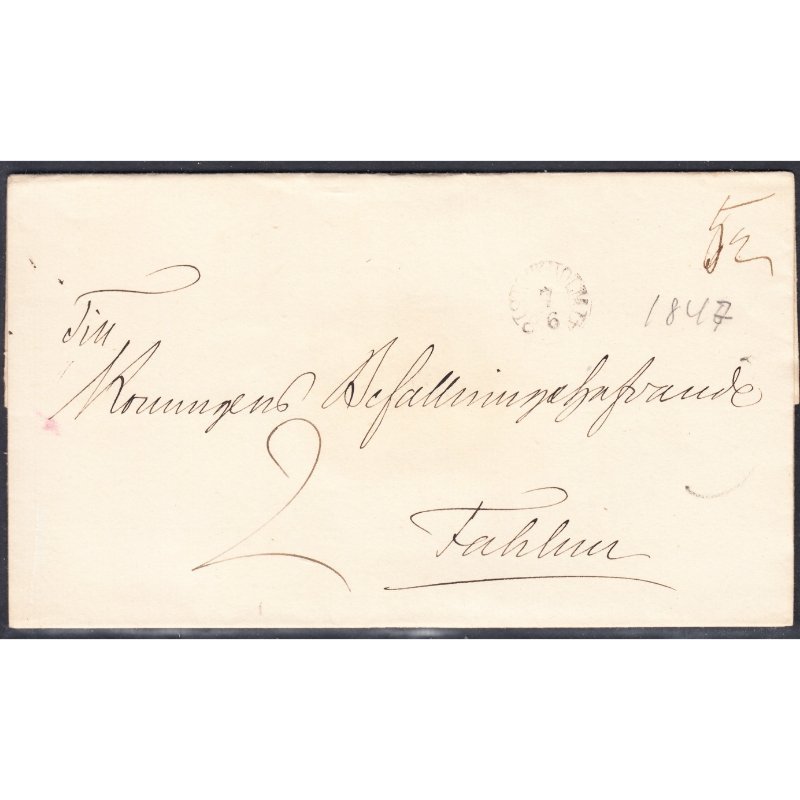 52
STOCKHOLM
7
6
1847
Till
Konungens Befallningshafvande
2
Fahlun